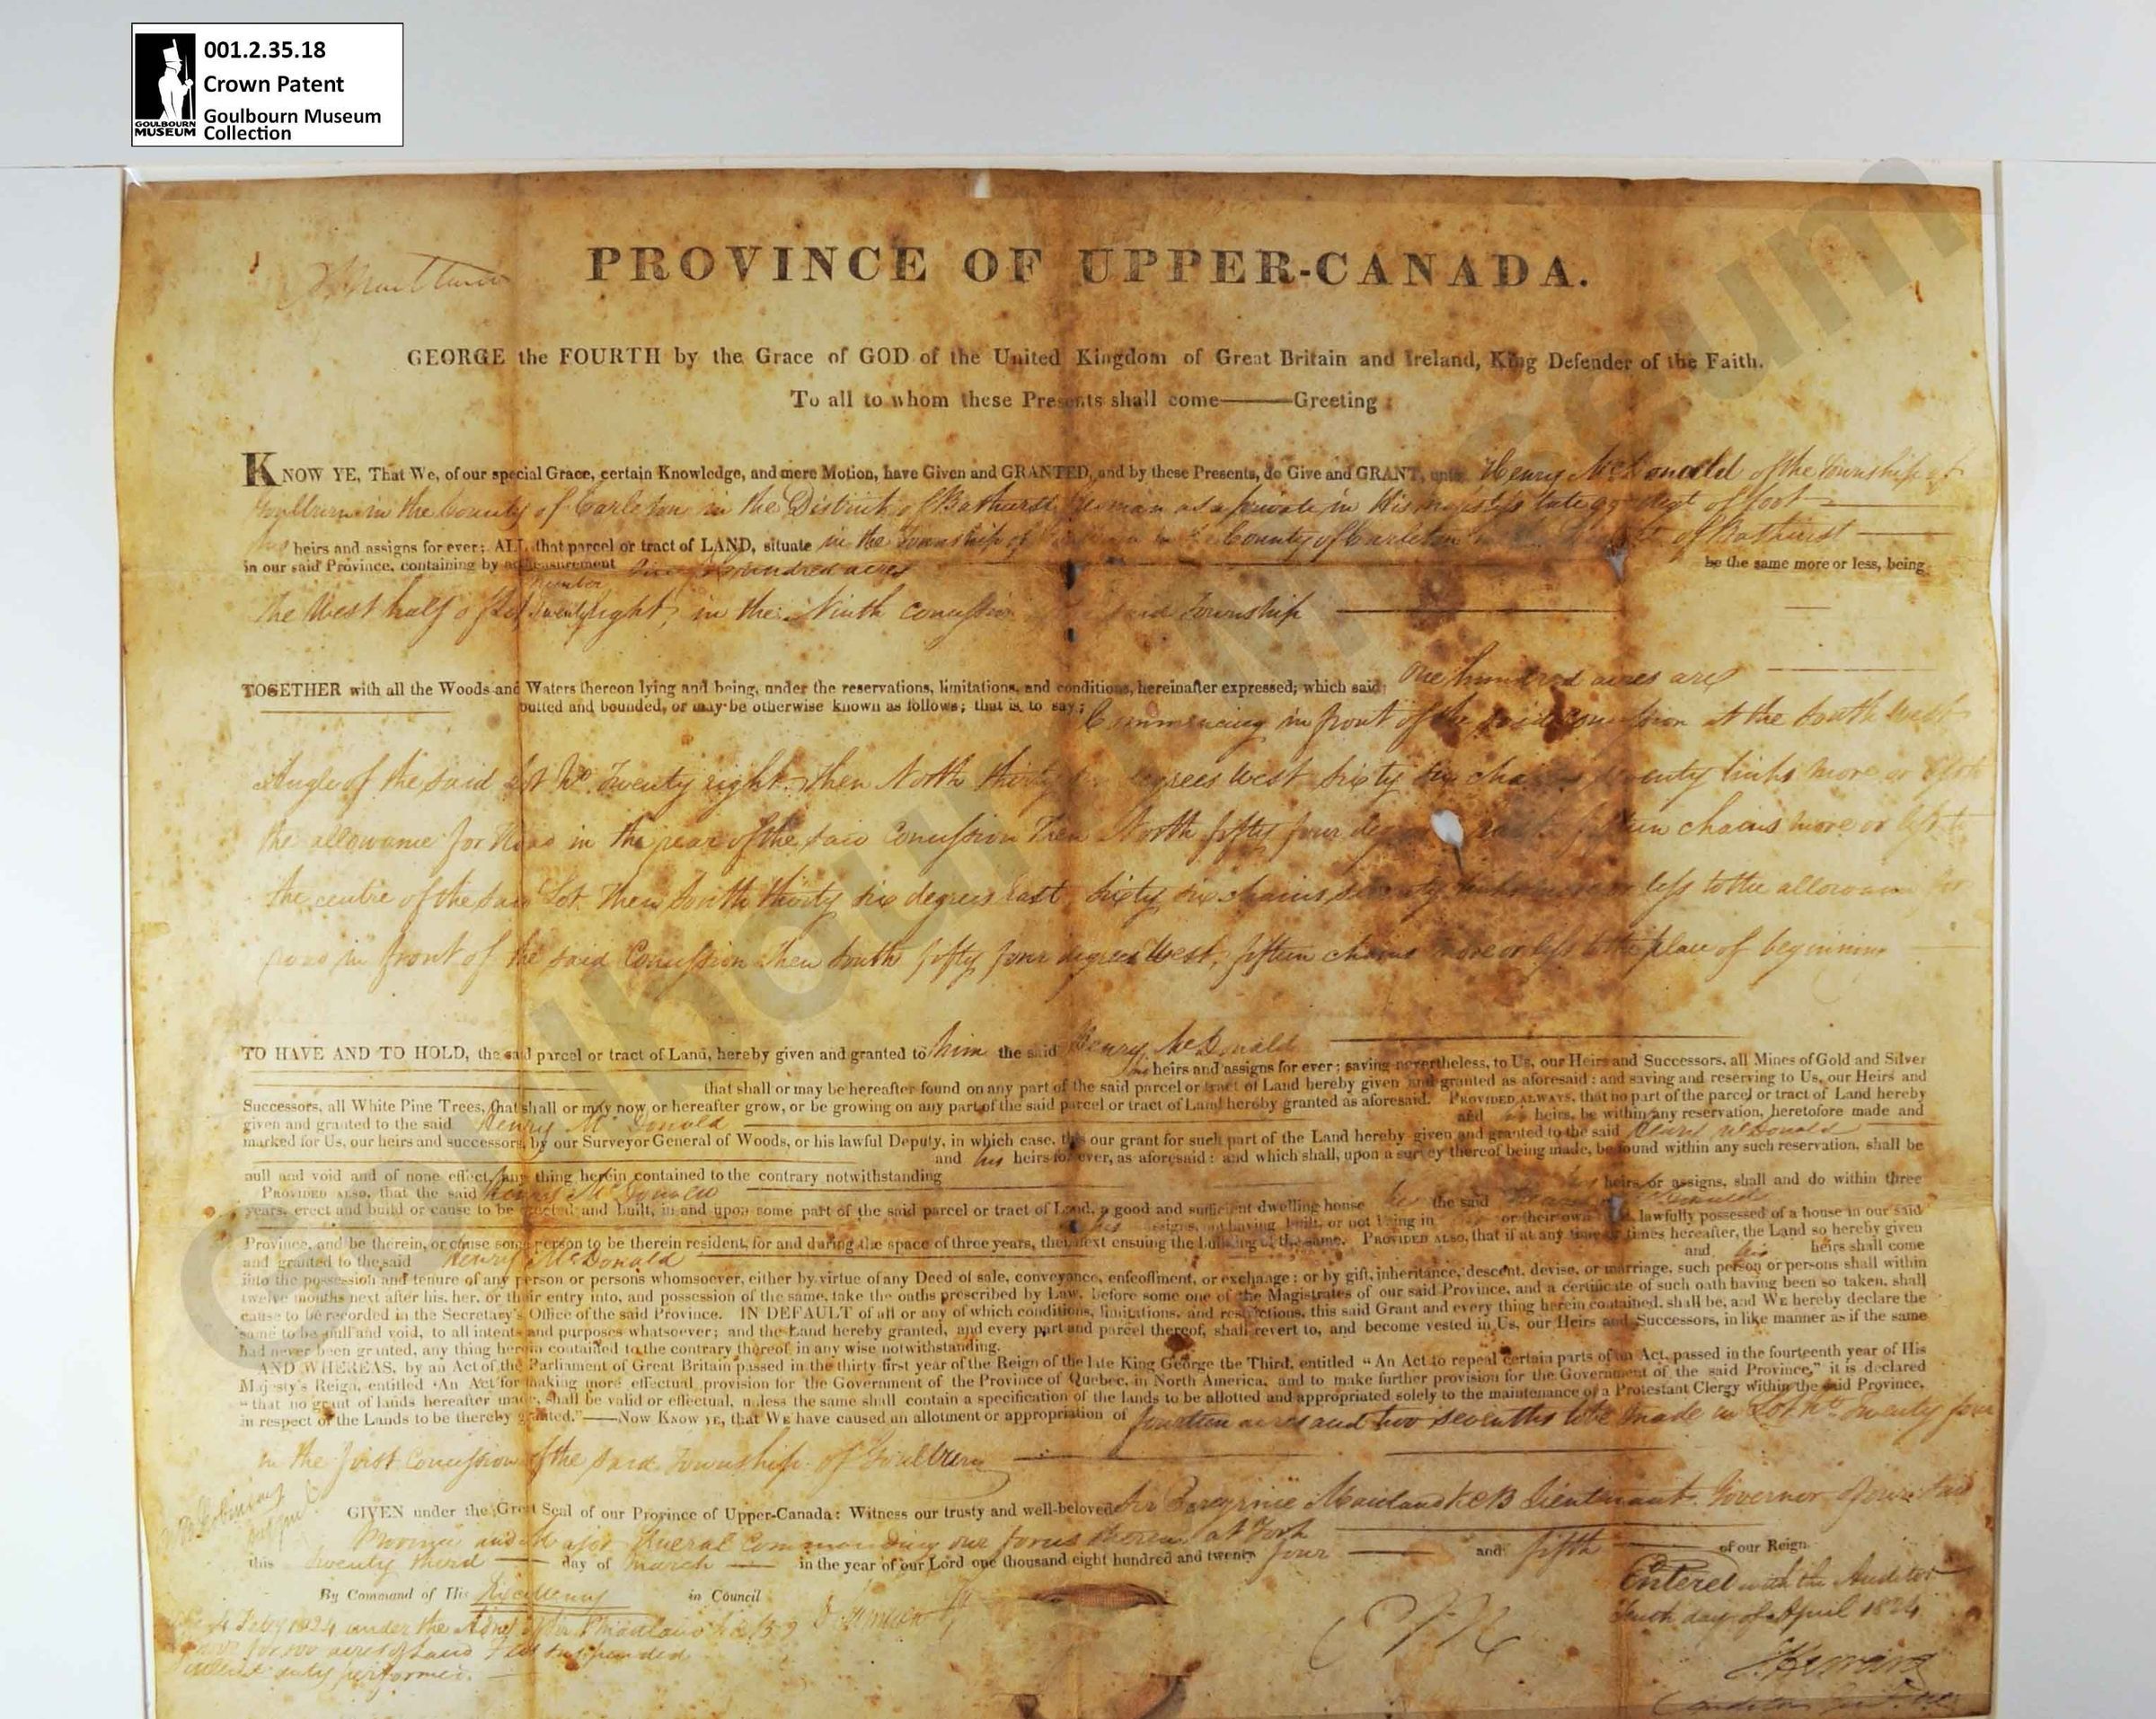 001.2.35.18
Crown Patent
Goulbourn Museum
Collection
GOULBOURN
MUSEUM
PROVINCE OF UPPER-CANADA.
P Maitland
GEORGE the FOURTH by the Grace of GOD of the United Kingdom of Great Britain and Ireland, King Defender of the Faith.
To all to whom these Presents shall come———Greeting:
KNOW YE, That We, of our special Grace, certain Knowledge, and mere Motion, have Given and GRANTED, and by these Presents, do Give and GRANT, unto Henry McDonald of the Township of
Goulburn in the County of Carleton in the District of Bathurst Yeoman as a private in His majestys late 99 Regt of foot
his heirs and assigns for ever; ALL that parcel or tract of LAND, situate in the Township of in the County of Carleton District of Bathurst
in our said Province, containing by admeasurement One hundred acres be the same more or less, being
the West half of Lot Number Twenty eight, in the Ninth Concession said Township
TOGETHER with all the Woods and Waters thereon lying and being, under the reservations, limitations, and conditions, hereinafter expressed; which said One hundred acres are
butted and bounded, or may be otherwise known as follows; that is to say; Commencing in front of the said Concession at the South West
Angle of the said Lot No. Twenty eight. Then North thirty degrees West sixty six chains seventy links more or less
the allowance for Road in the rear of the said Concession Then North fifty four degrees fifteen chains more or less to
the centre of the said Lot. Then South thirty six degrees East, sixty six chains seventy links more or less to the allowance for
road in front of the said Concession Then South fifty four degrees West, fifteen chains more or less to the place of beginning
TO HAVE AND TO HOLD, the said parcel or tract of Land, hereby given and granted to him the said Henry McDonald
his heirs and assigns for ever; saving nevertheless, to Us, our Heirs and Successors, all Mines of Gold and Silver
that shall or may be hereafter found on any part of the said parcel or tract of Land hereby given and granted as aforesaid: and saving and reserving to Us, our Heirs and
Successors, all White Pine Trees, that shall or may now or hereafter grow, or be growing on any part of the said parcel or tract of Land hereby granted as aforesaid. PROVIDED ALWAYS, that no part of the parcel or tract of Land hereby
given and granted to the said Henry McDonald and his heirs, be within any reservation, heretofore made and
marked for Us, our heirs and successors, by our Surveyor General of Woods, or his lawful Deputy, in which case, this our grant for such part of the Land hereby given and granted to the said Henry McDonald
and his heirs for ever, as aforesaid: and which shall, upon a survey thereof being made, be found within any such reservation, shall be
null and void and of none effect, any thing herein contained to the contrary notwithstanding
PROVIDED ALSO, that the said Henry McDonald his heirs or assigns, shall and do within three
years, erect and build or cause to be erected and built, in and upon some part of the said parcel or tract of Land, a good and sufficient dwelling house he the said Henry McDonald
or his assigns, not having built, or not being in or their own lawfully possessed of a house in our said
Province, and be therein, or cause some person to be therein resident, for and during the space of three years, then next ensuing the building of the same. PROVIDED ALSO, that if at any time or times hereafter, the Land so hereby given
and granted to the said Henry McDonald and his heirs shall come
into the possession and tenure of any person or persons whomsoever, either by virtue of any Deed of sale, conveyance, enfeoffment, or exchange; or by gift, inheritance, descent, devise, or marriage, such person or persons shall within
twelve months next after his, her, or their entry into, and possession of the same, take the oaths prescribed by Law, before some one of the Magistrates of our said Province, and a certificate of such oath having been so taken, shall
cause to be recorded in the Secretary's Office of the said Province. IN DEFAULT of all or any of which conditions, limitations, and restrictions, this said Grant and every thing herein contained, shall be, and WE hereby declare the
same to be null and void, to all intents and purposes whatsoever; and the Land hereby granted, and every part and parcel thereof, shall revert to, and become vested in Us, our Heirs and Successors, in like manner as if the same
had never been granted, any thing herein contained to the contrary thereof in any wise notwithstanding.
AND WHEREAS, by an Act of the Parliament of Great Britain passed in the thirty first year of the Reign of the late King George the Third, entitled "An Act to repeal certain parts of an Act, passed in the fourteenth year of His
Majesty's Reign, entitled 'An Act for making more effectual provision for the Government of the Province of Quebec, in North America, and to make further provision for the Government of the said Province," it is declared
"that no grant of lands hereafter made, shall be valid or effectual, unless the same shall contain a specification of the lands to be allotted and appropriated solely to the maintenance of a Protestant Clergy within the said Province,
in respect of the Lands to be thereby granted."——NOW KNOW YE, that WE have caused an allotment or appropriation of fourteen acres and two sevenths to be made in Lot No. Twenty four
in the first Concession of the said Township of Goulburn
GIVEN under the Great Seal of our Province of Upper-Canada: Witness our trusty and well-beloved Sir Peregrine Maitland KCB Lieutenant Governor of our said
Province and Major General Commanding our forces therein, at York
this twenty third day of March in the year of our Lord one thousand eight hundred and twenty four and fifth of our Reign.
By Command of His Excellency in Council
Entered with the Auditor
tenth day of April 1824
4 Feby 1824 under the
for 100 acres of Land Fees suspended
duly performed.
PM
Goulbourn Museum